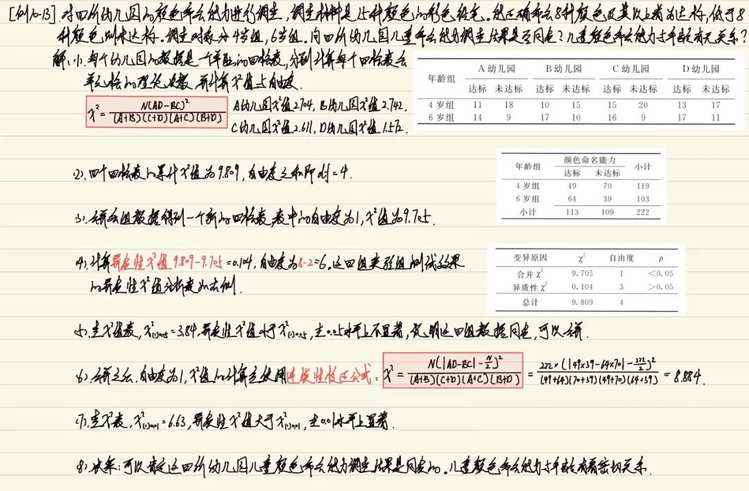 [例10-13] 对四所幼儿园的颜色命名能力进行调查，调查材料是15种颜色的彩色铅笔。能正确命名8种颜色及其以上者为达标，低于8
种颜色则未达标。调查对象分4岁组，6岁组。问四所幼儿园儿童命名能力调查结果是否同质？儿童颜色命名能力与年龄有无关系？
解：(1). 每个幼儿园的数据是一个单独的四格表，分别计算每个四格表各
单元格的理论次数，并计算χ²值与自由度.
χ²= N(AD-BC)² / (A+B)(C+D)(A+C)(B+D)
A幼儿园χ²值2.704, B幼儿园χ²值2.742,
C幼儿园χ²值2.611, D幼儿园χ²值1.572.
年龄组 A幼儿园 B幼儿园 C幼儿园 D幼儿园
达标 未达标 达标 未达标 达标 未达标 达标 未达标
4岁组 11 18 10 15 15 20 13 17
6岁组 14 9 17 10 16 9 17 11
(2). 四个四格表的累计χ²值为9.809, 自由度之和即df=4.
年龄组 颜色命名能力 小计
达标 未达标
4岁组 49 70 119
6岁组 64 39 103
小计 113 109 222
(3). 合并各组数据得到一个新的四格表, 表中的自由度为1, χ²值为9.705.
(4). 计算异质性χ²值 9.809-9.705=0.104, 自由度为8-2=6。这四组类型组测试效果
的异质性χ²值分析表如右侧.
变异原因 χ² 自由度 p
合并χ² 9.705 1 <0.05
异质性χ² 0.104 3 >0.05
总计 9.809 4
(5). 查χ²值表, χ²(1)0.05=3.84, 异质性χ²值小于χ²(1)0.05, 在0.05水平上不显著, 说明这四组数据同质, 可以合并.
(6). 合并之后, 自由度为1, χ²值的计算应使用连续性校正公式: χ²= N(|AD-BC|-N/2)² / (A+B)(C+D)(A+C)(B+D) = 222×(|49×39-64×70|-222/2)² / (49+64)(70+39)(49+70)(64+39) = 8.884.
(7). 查χ²表, χ²(1)0.01=6.63, 异质性χ²值大于χ²(1)0.01, 在0.01水平上显著.
(8). 决策: 可以确定这四所幼儿园儿童颜色命名能力调查结果是同质的. 儿童颜色命名能力与年龄有着密切关系.